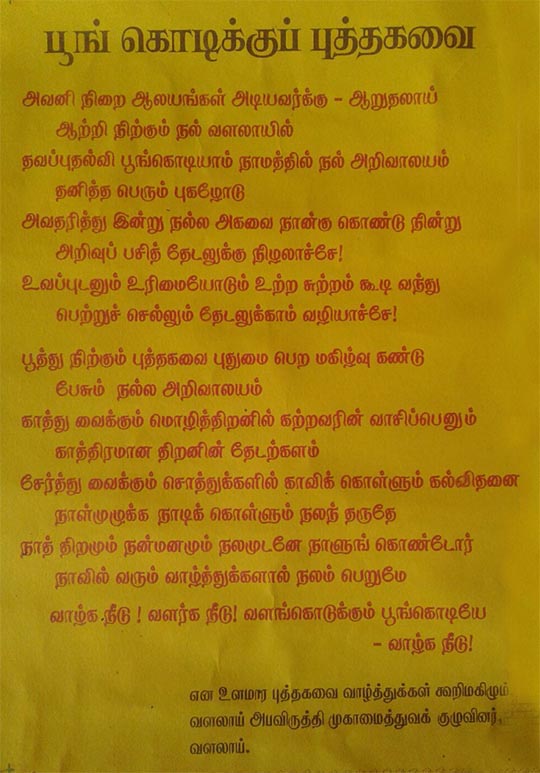 பூங் கொடிக்குப் புத்தகவை
அவனி நிறை ஆலயங்கள் அடியவர்க்கு - ஆறுதலாய்
ஆற்றி நிற்கும் நல் வளலாயில்
தவப்புதல்வி பூங்கொடியாம் நாமத்தில் நல் அறிவாலயம்
தனித்த பெரும் புகழோடு
அவதரித்து இன்று நல்ல அகவை நான்கு கொண்டு நின்று
அறிவுப் பசித் தேடலுக்கு நிழலாச்சே!
உவப்புடனும் உரிமையோடும் உற்ற சுற்றம் கூடி வந்து
பெற்றுச் செல்லும் தேடலுக்காம் வழியாச்சே!
பூத்து நிற்கும் புத்தகவை புதுமை பெற மகிழ்வு கண்டு
பேசும் நல்ல அறிவாலயம்
காத்து வைக்கும் மொழித்திறனில் கற்றவரின் வாசிப்பெனும்
காத்திரமான திறனின் தேடற்களம்
சேர்த்து வைக்கும் சொத்துக்களில் காவிக் கொள்ளும் கல்விதனை
நாள்முழுக்க நாடிக் கொள்ளும் நலந் தருதே
நாத் திறமும் நன்மனமும் நலமுடனே நாளுங் கொண்டோர்
நாவில் வரும் வாழ்த்துக்களால் நலம் பெறுமே
வாழ்க நீடு ! வளர்க நீடு! வளங்கொடுக்கும் பூங்கொடியே
- வாழ்க நீடு!
என உளமார புத்தகவை வாழ்த்துக்கள் கூறிமகிழும்
வளலாய் அபவிருத்தி முகாமைத்துவக் குழுவினர்,
வளலாய்.